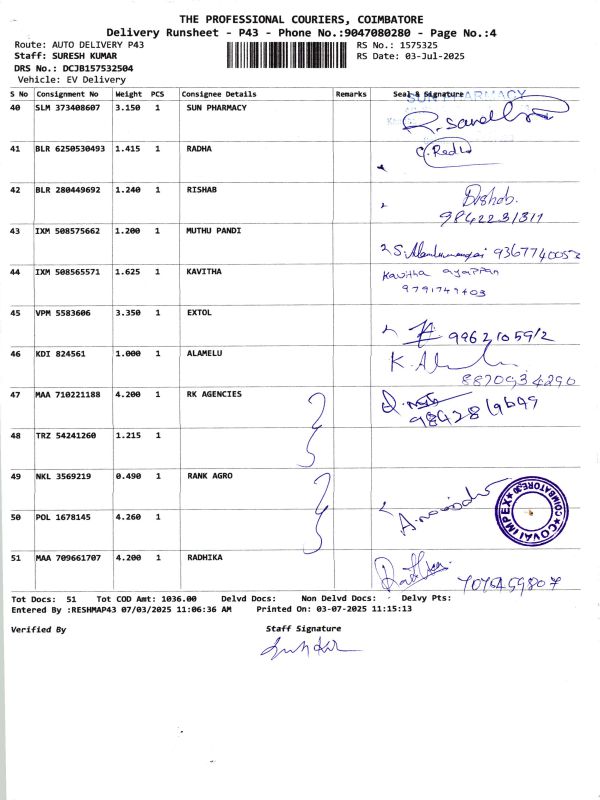 THE PROFESSIONAL COURIERS, COIMBATORE
Delivery Runsheet - P43 - Phone No.:9047080280 - Page No.:4
Route: AUTO DELIVERY P43 RS No.: 1575325
Staff: SURESH KUMAR RS Date: 03-Jul-2025
DRS No.: DCJB157532504
Vehicle: EV Delivery
S No Consignment No Weight PCS Consignee Details Remarks Seal & Signature
SUN PHARMACY
40 SLM 373408607 3.150 1 SUN PHARMACY
41 BLR 6250530493 1.415 1 RADHA
42 BLR 280449692 1.240 1 RISHAB
9842231311
43 IXM 508575662 1.200 1 MUTHU PANDI
9367740052
44 IXM 508565571 1.625 1 KAVITHA Kavitha ayappan
9791749403
45 VPM 5583606 3.350 1 EXTOL
9962105912
46 KDI 824561 1.000 1 ALAMELU
8870934290
47 MAA 710221188 4.200 1 RK AGENCIES
9842819649
48 TRZ 54241260 1.215 1
49 NKL 3569219 0.490 1 RANK AGRO
COVAI IMPEX COIMBATORE
50 POL 1678145 4.260 1
51 MAA 709661707 4.200 1 RADHIKA
Tot Docs: 51 Tot COD Amt: 1036.00 Delvd Docs: Non Delvd Docs: Delvy Pts:
Entered By :RESHMAP43 07/03/2025 11:06:36 AM Printed On: 03-07-2025 11:15:13
Verified By Staff Signature